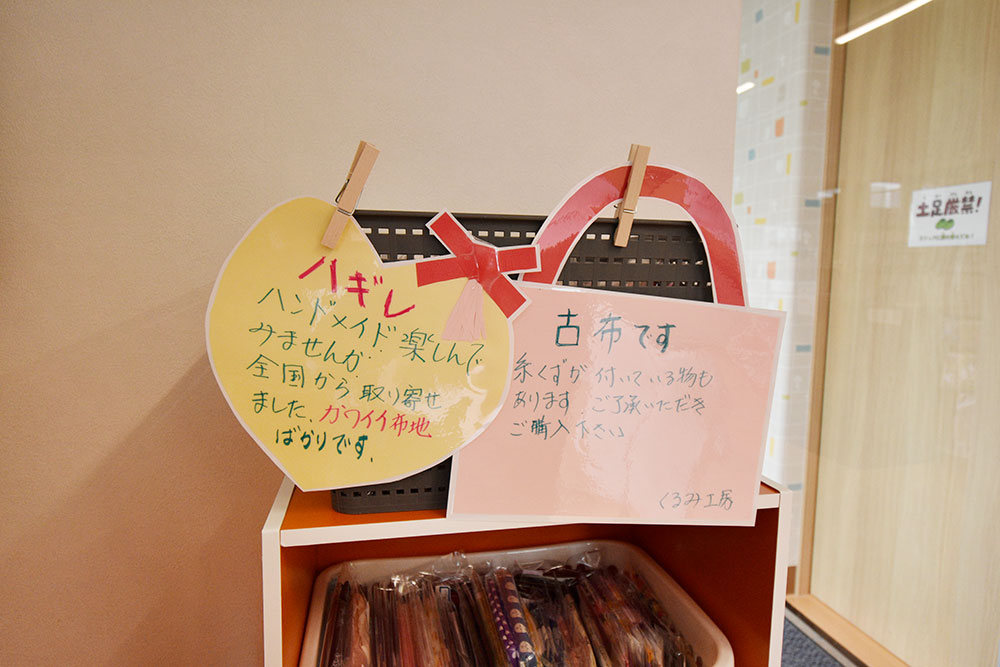 ハギレ
ハンドメイド楽しんで
みませんか‥
全国から取り寄せ
ました、カワイイ布地
ばかりです。
古布です
糸くずが付いている物も
あります ご了承いただき
ご購入下さい
くるみ工房
土足厳禁!